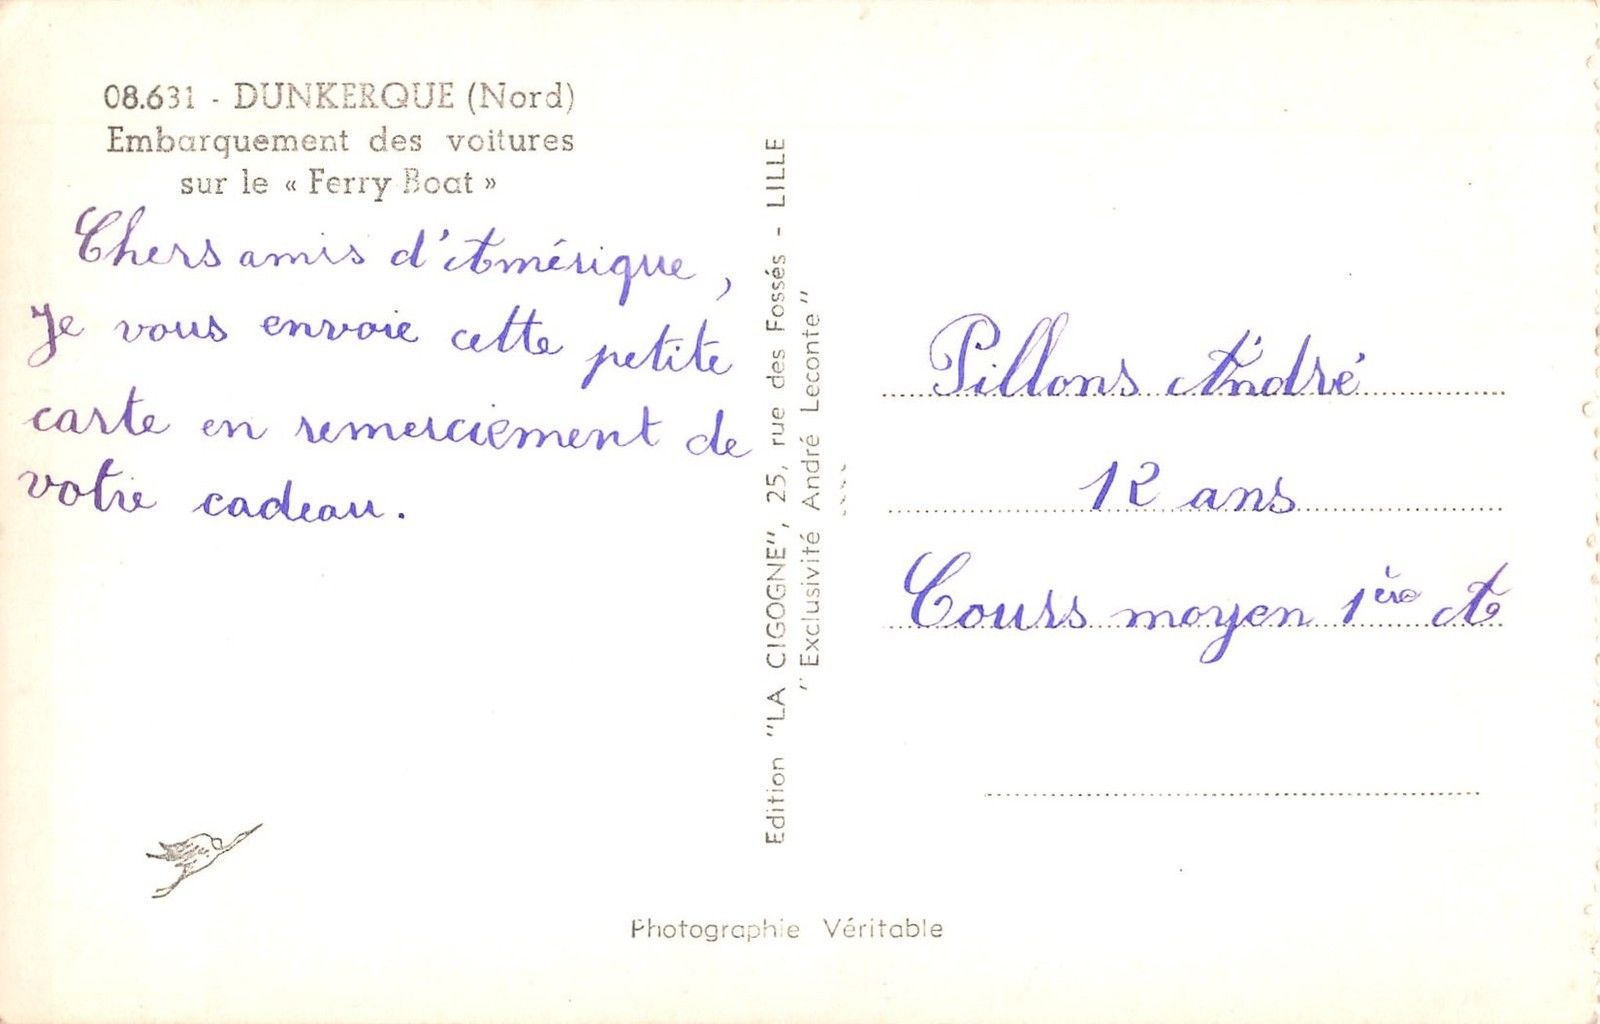 08.631 - DUNKERQUE (Nord)
Embarquement des voitures
sur le « Ferry Boat »
Chers amis d'Amérique,
Je vous envoie cette petite
carte en remerciement de
votre cadeau.
Edition "LA CIGOGNE", 25, rue des Fossés - LILLE
"Exclusivité André Leconte"
Pillons André
12 ans
Cours moyen 1ère A
Photographie Véritable